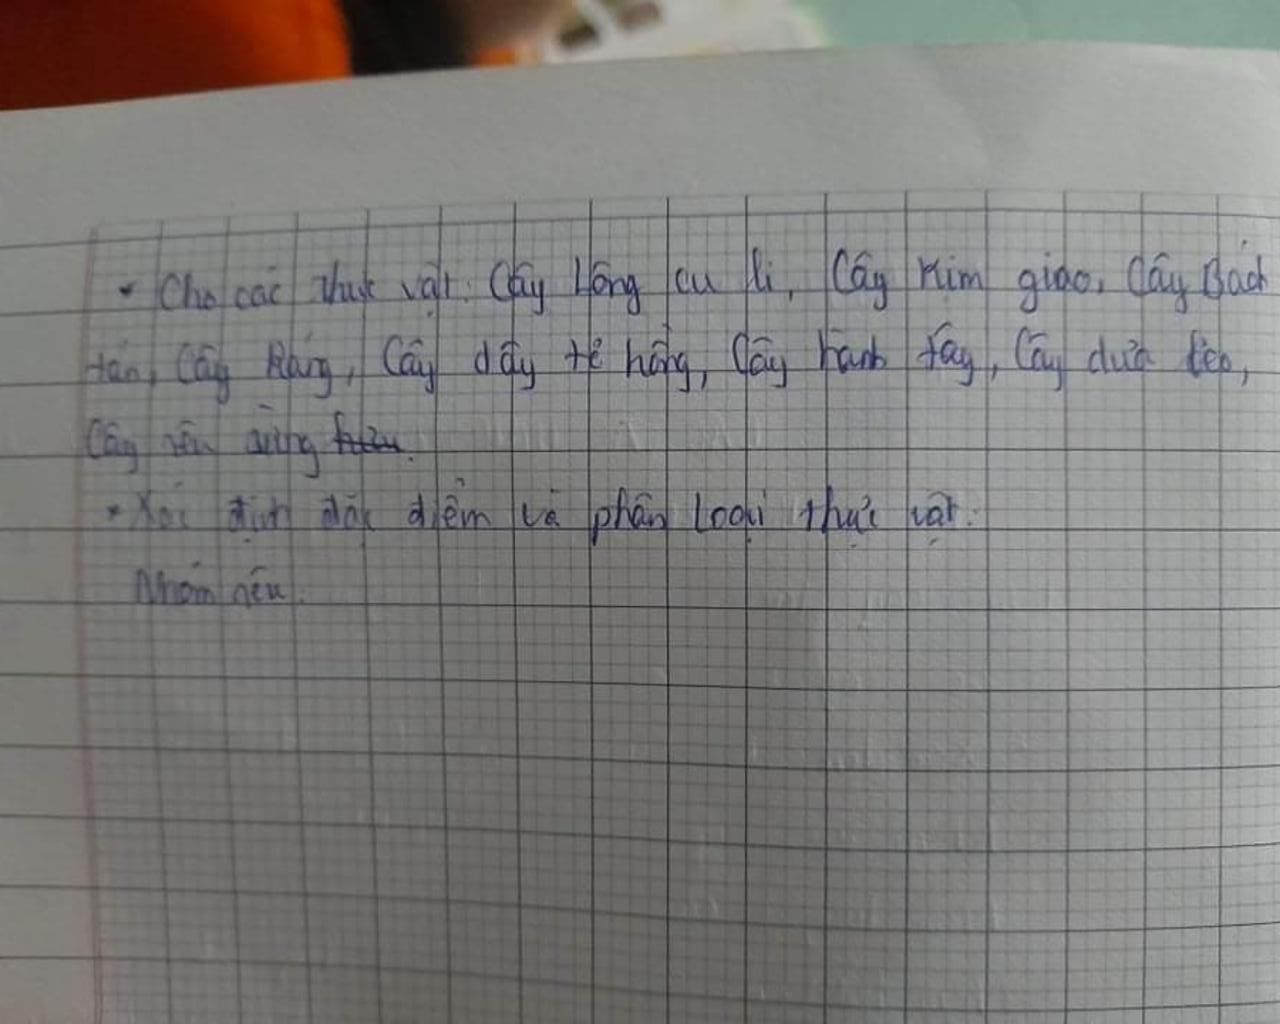 • Cho các thực vật: Cây Lông cu li, Cây Kim giao, Cây Bách
tán, Cây Ráng, Cây dây tê hồng, Cây hành tây, Cây dừa
Cây
* Xác định đặc điểm và phân Loại thực vật.
Nhóm nêu.